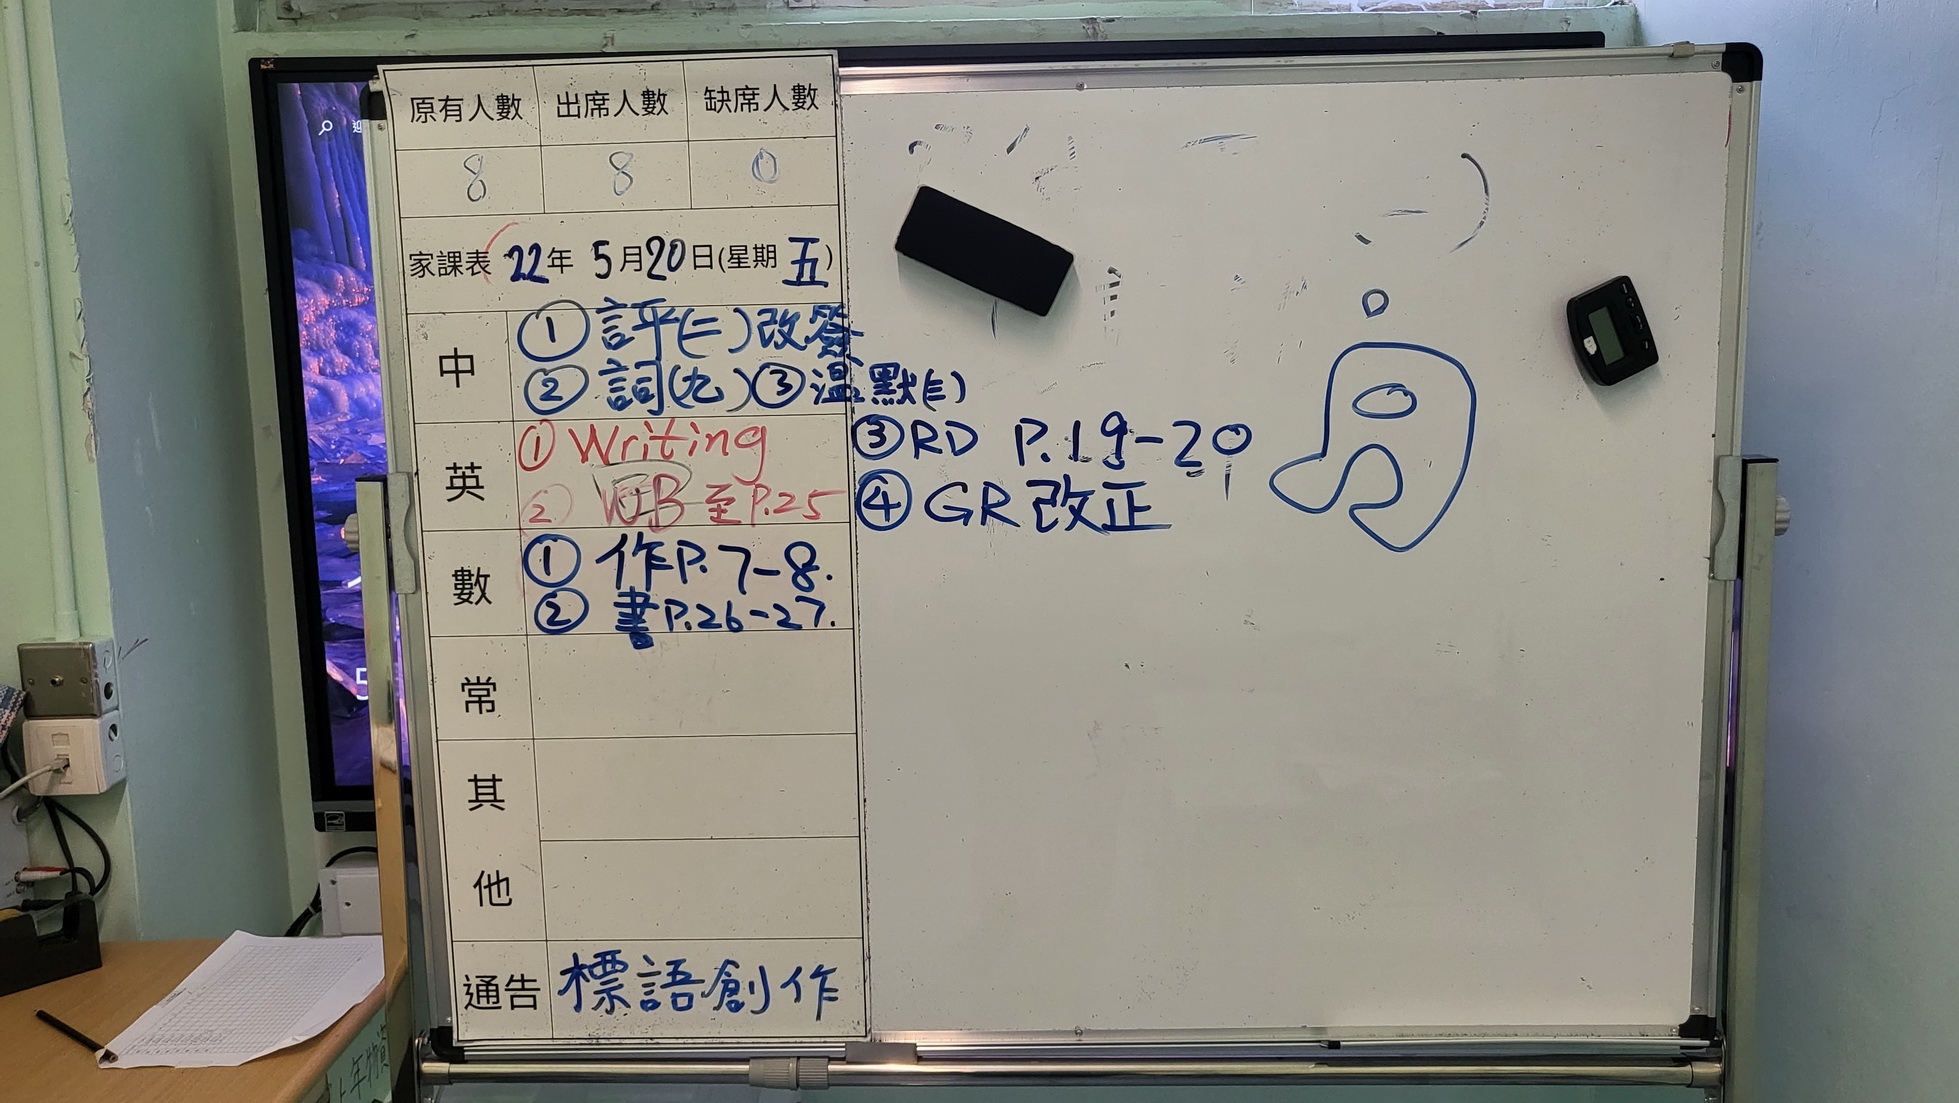 原有人數 出席人數 缺席人數
8 8 0
家課表 22年 5月20日(星期 五)
中 ① 評(二)改簽
② 詞(九) ③ 溫默(三)
英 ① Writing ③ RD P.19-20
② WB 至P.25 ④ GR 改正
數 ① 作P.7-8.
② 書P.26-27.
常
其
他
通告 標語創作